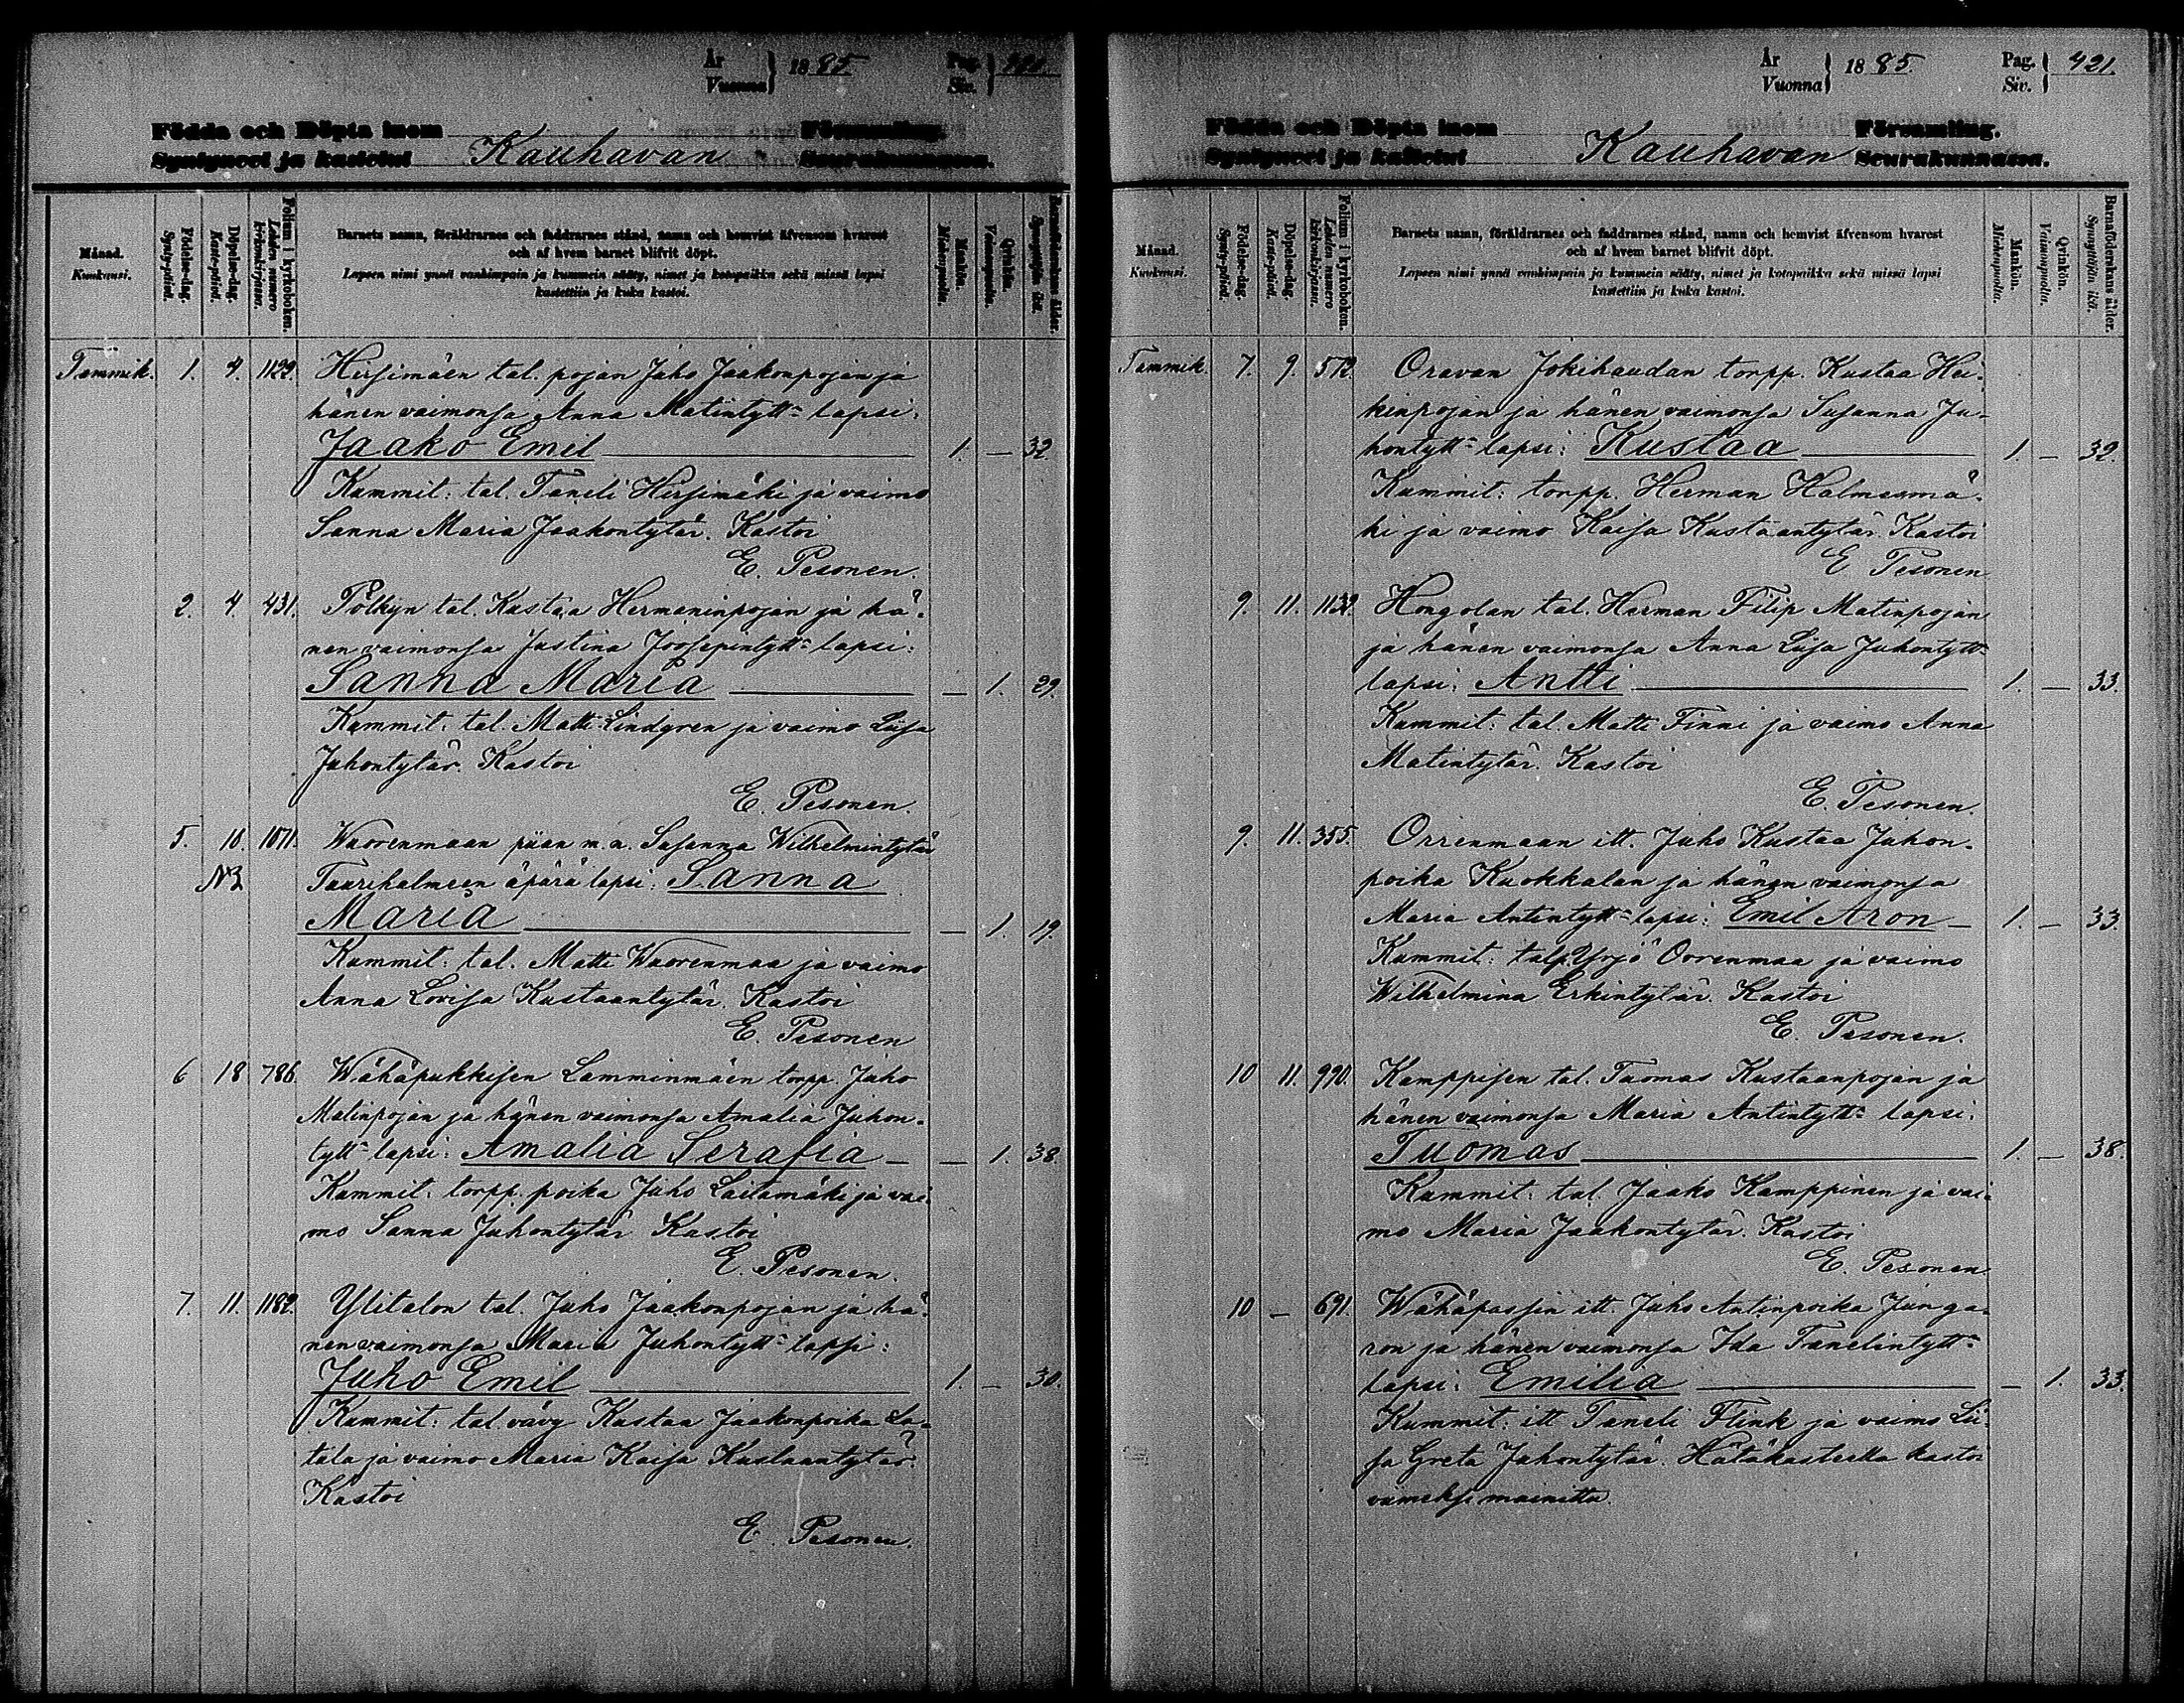 År
Vuonna } 1885.
Pag.
Siv. } 420.
Födda och Döpta inom Församling.
Syntyneet ja kastetut Kauhavan Seurakunnassa.
Månad.
Kuukausi.
Födelse-dag.
Synty-päivä.
Döpelse-dag.
Kaste-päivä.
Folium i kyrkoboken.
Lehden numero kirkonkirjassa.
Barnets namn, föräldrarnes och faddrarnes stånd, namn och hemvist äfvensom hvarest
och af hvem barnet blifvit döpt.
Lapsen nimi ynnä vanhimpain ja kummein sääty, nimet ja kotopaikka sekä missä lapsi
kastettiin ja kuka kastoi.
Mankön.
Miehenpuolia.
Qvinkön.
Vaimonpuolia.
Barnaföderskans ålder.
Synnyttäjän ikä.
Tammik. 1. 4. 1122. Hirsimäen tal. pojan Juho Jaakonpojan ja
hänen vaimonsa Anna Matintytt- lapsi:
Jaako Emil 1. — 32
Kummit: tal. Taneli Hirsimäki ja vaimo
Sanna Maria Jaakontytär. Kastoi
E. Pesonen.
2. 4 431. Pölkyn tal. Kustaa Hermaninpojan ja hä-
nen vaimonsa Justina Joosepintytt- lapsi:
Sanna Maria — 1. 29.
Kummit: tal. Matti Lindgren ja vaimo Liisa
Juhontytär. Kastoi
E. Pesonen.
5. 10. 1071. Wuorenmaan piian m.n. Susanna Wilhelmintytär
N3 Taurihalmeen äpärä lapsi: Sanna
Maria — 1. 19.
Kummit: tal. Matti Wuorenmaa ja vaimo
Anna Lovisa Kustaantytär. Kastoi
E. Pesonen
6 18 786. Wähäpukkisen Lamminmäen torpp. Juho
Matinpojan ja hänen vaimonsa Amalia Juhon-
tytt- lapsi: Amalia Serafia — — 1. 38.
Kummit: torpp. poika Juho Laitamäki ja vai-
mo Sanna Juhontytär Kastoi
E. Pesonen.
7. 11. 1182. Ylitalon tal. Juho Jaakonpojan ja hä-
nen vaimonsa Maria Juhontytt- lapsi:
Juho Emil 1. — 30.
Kummit: tal. vävy Kustaa Jaakonpoika La-
tala ja vaimo Maria Kaisa Kustaantytär.
Kastoi
E. Pesonen.
År
Vuonna } 1885.
Pag.
Siv. } 421.
Födda och Döpta inom Församling.
Syntyneet ja kastetut Kauhavan Seurakunnassa.
Månad.
Kuukausi.
Födelse-dag.
Synty-päivä.
Döpelse-dag.
Kaste-päivä.
Folium i kyrkoboken.
Lehden numero kirkonkirjassa.
Barnets namn, föräldrarnes och faddrarnes stånd, namn och hemvist äfvensom hvarest
och af hvem barnet blifvit döpt.
Lapsen nimi ynnä vanhimpain ja kummein sääty, nimet ja kotopaikka sekä missä lapsi
kastettiin ja kuka kastoi.
Mankön.
Miehenpuolia.
Qvinkön.
Vaimonpuolia.
Barnaföderskans ålder.
Synnyttäjän ikä.
Tammik. 7. 9. 572. Oravan Jokihaudan torpp. Kustaa Hei-
kinpojan ja hänen vaimonsa Susanna Ju-
hontytt- lapsi: Kustaa 1. — 32.
Kummit: torpp. Herman Halmesmä-
ki ja vaimo Kaisa Kustaantytär. Kastoi
E Pesonen
9. 11. 1132. Hongolan tal. Herman Filip Matinpojan
ja hänen vaimonsa Anna Liisa Juhontytt-
lapsi: Antti 1. — 33.
Kummit: tal. Matti Finni ja vaimo Anna
Matintytär. Kastoi
E. Pesonen.
9. 11. 355. Orrenmaan itt. Juho Kustaa Juhon-
poika Kuokkalan ja hänen vaimonsa
Maria Antintytt- lapsi: Emil Aron — 1. — 33.
Kummit: talp. Yrjö Orrenmaa ja vaimo
Wilhelmina Erkintytär. Kastoi
E. Pesonen.
10 11. 990. Kamppisen tal. Tuomas Kustaanpojan ja
hänen vaimonsa Maria Antintytt- lapsi:
Tuomas 1. — 38.
Kummit: tal. Jaako Kamppinen ja vai-
mo Maria Jaakontytär. Kastoi
E. Pesonen.
10 — 691. Wähäpassin itt. Juho Antinpoika Junga-
ron ja hänen vaimonsa Ida Tanelintytt-
lapsi: Emilia — 1. 33.
Kummit: itt Taneli Flink ja vaimo Lii-
sa Greta Juhontytär. Hätäkasteella kastoi
viimeksi mainittu.